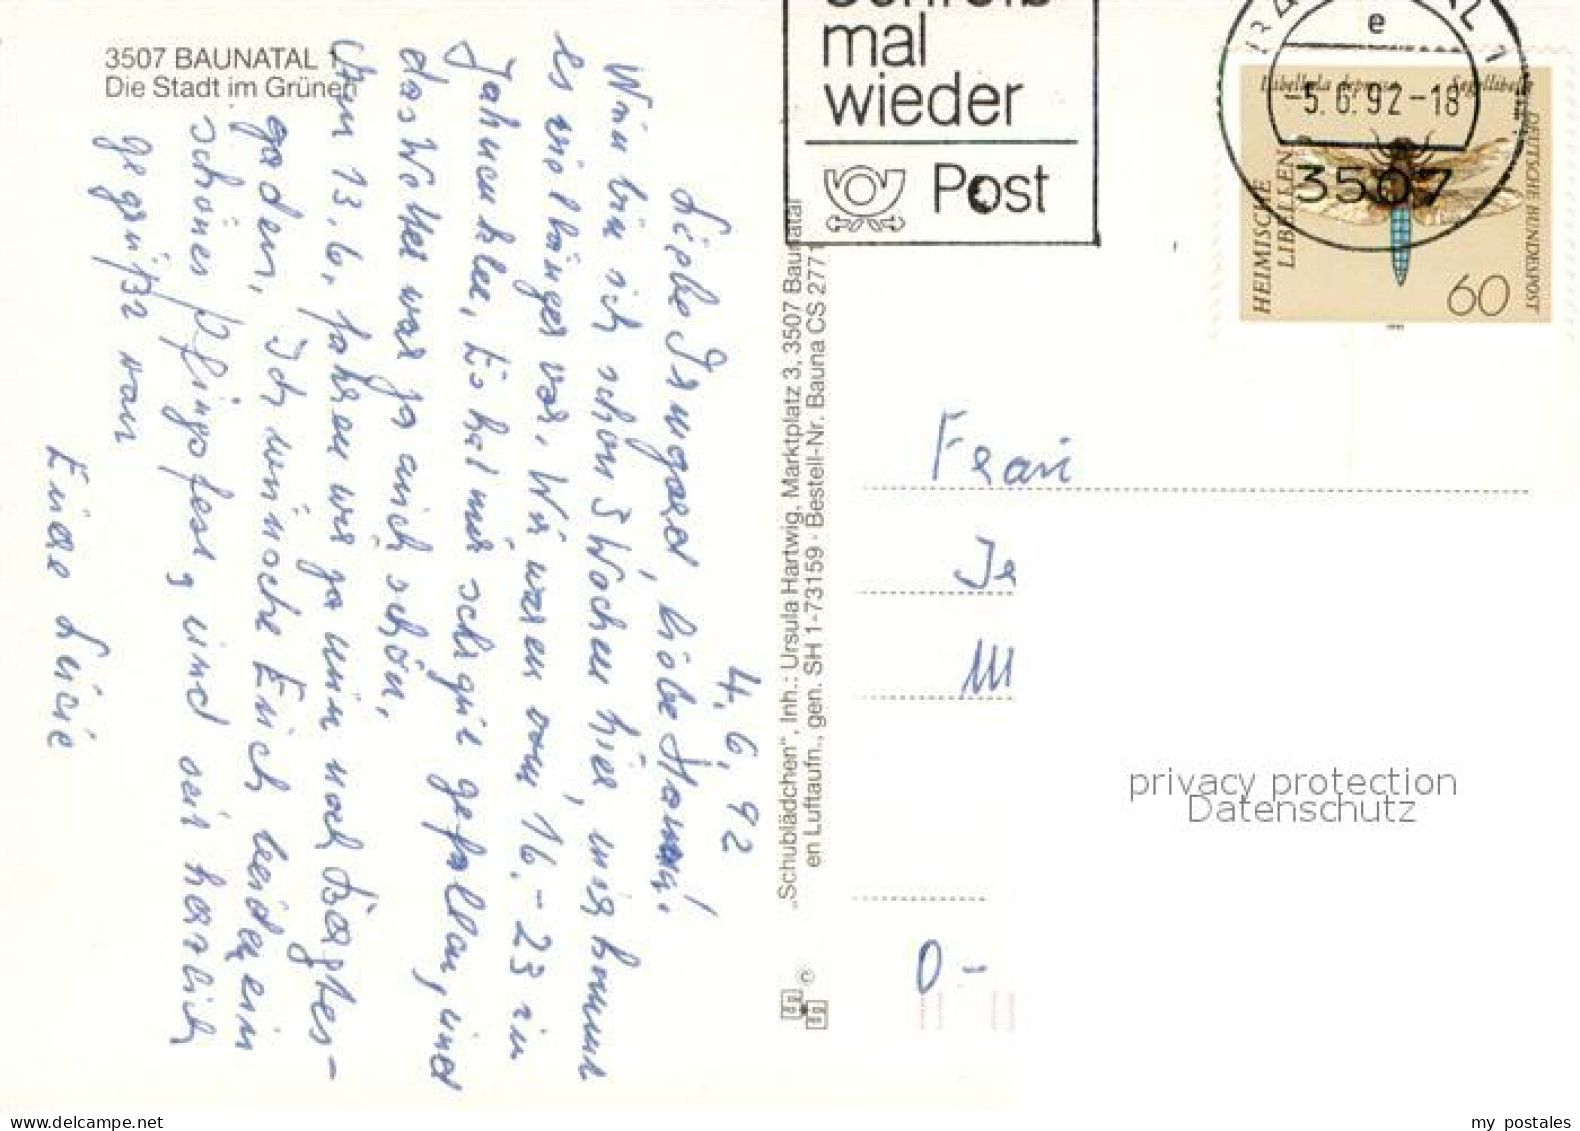 3507 BAUNATAL 1
Die Stadt im Grünen
4.6.92
Liebe Irmgard, liebe Hanni!
Nun bin ich schon 3 Wochen hier, mir kommt
es viel länger vor. Wir waren vom 16.-23 in
Jahnenklee. Es hat mir sehr gut gefallen, und
das Wetter war ja auch schön.
Am 13.6. fahren wir ja nun noch Bergtes-
gaden. Ich wünsche Euch beiden ein
schönes Pfingstfest, und seit herzlich
gegrüßt von
Eure Lucie
„Schublädchen", Inh.: Ursula Hartwig, Marktplatz 3, 3507 Baunatal
en Luftaufn., gen. SH 1-73159 · Bestell-Nr. Bauna CS 2771
©
Schreib
mal
wieder
Post
BAUNATAL 1
e
-5.6.92-18
3507
Libellula depressa Segellibelle
HEIMISCHE
LIBELLEN
DEUTSCHE BUNDESPOST
60
Frau
Je
M
O-
privacy protection
Datenschutz
my postales